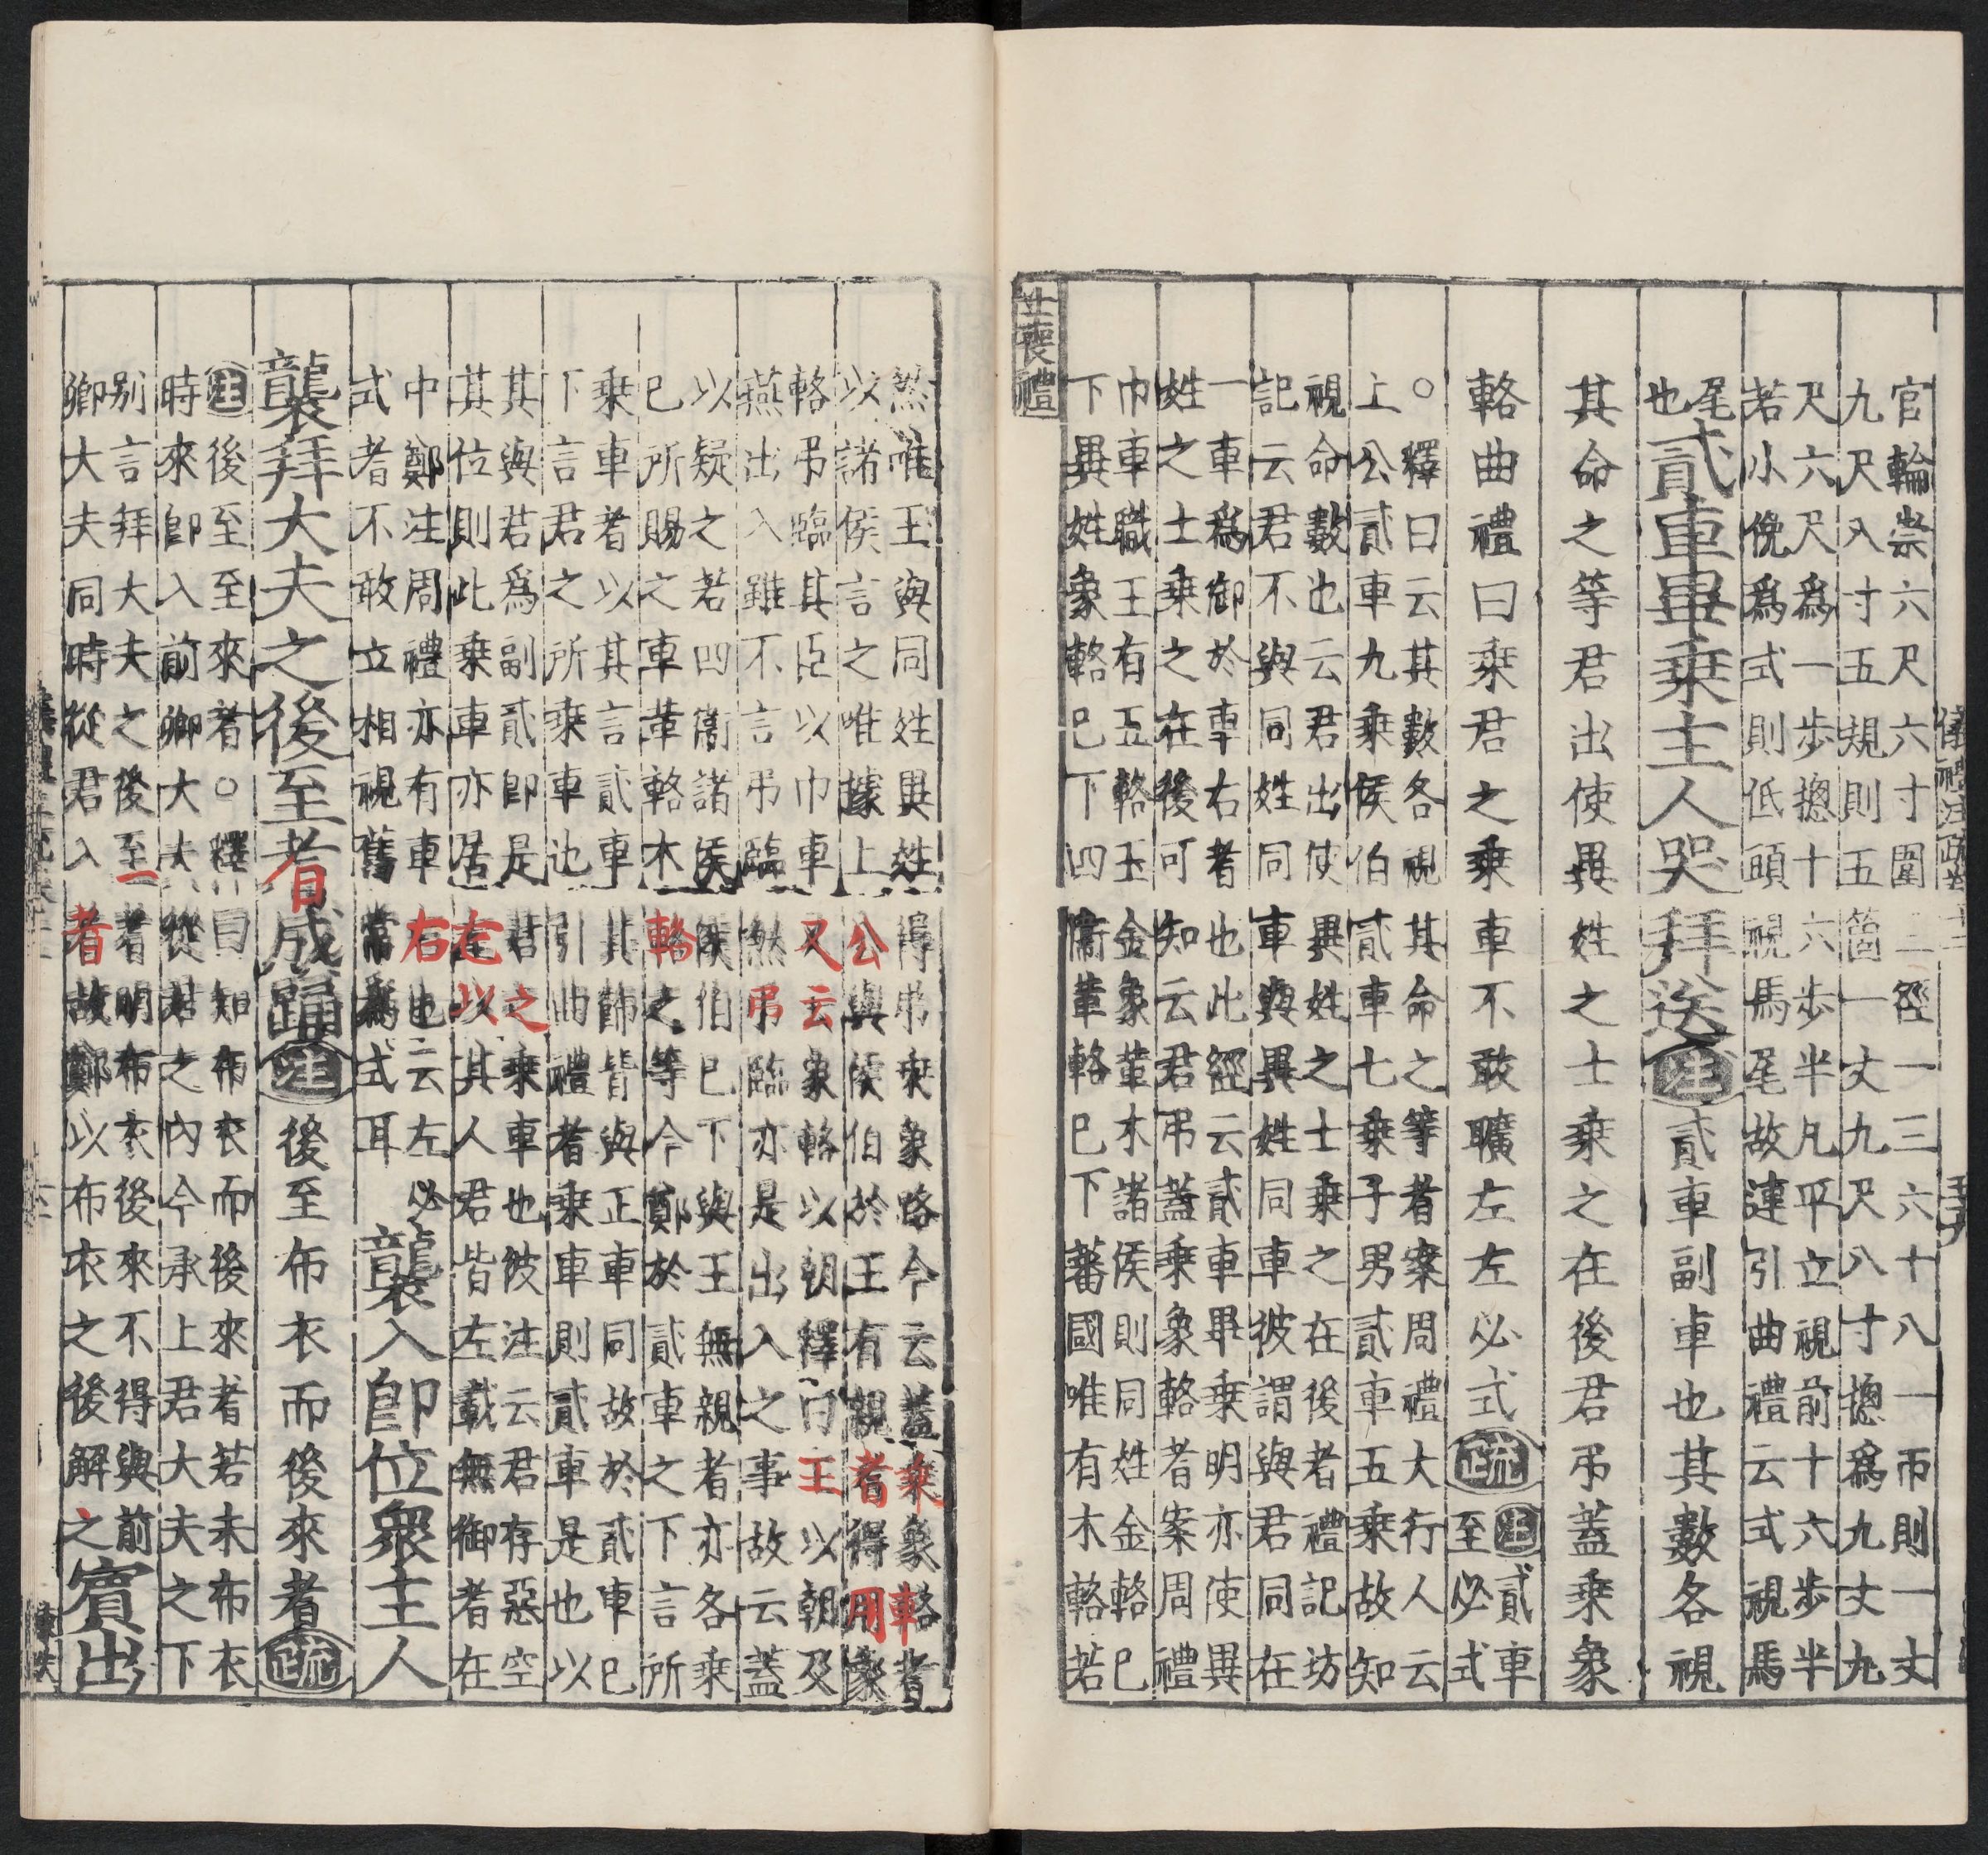 官輪崇六尺六寸圍三徑一三六十八一帀則一丈
九尺八寸五規則五箇一丈九尺八寸摠爲九丈九
尺六尺爲一步摠十六步半凡平立視前十六步半
若小俛爲式則低頭視馬尾故連引曲禮云式視馬
尾
也
貳車畢乗主人哭拜送注貳車副車也其數各視
其命之等君出使異姓之士乗之在後君弔蓋乗象
輅曲禮曰乗君之乗車不敢曠左左必式疏
注貳車
至必式
○釋曰云其數各視其命之等者案周禮大行人云
上公貳車九乗侯伯貳車七乗子男貳車五乗故知
視命數也云君出使異姓之士乗之在後者禮記坊
記云君不與同姓同車與異姓同車彼謂與君同在
一車爲御於車右者也此經云貳車畢乗明亦使異
姓之士乗之在後可知云君弔蓋乗象輅者案周禮
巾車職王有五輅玉金象革木諸侯則同姓金輅巳
下異姓象輅巳下四衞革輅巳下蕃國唯有木輅若
士喪禮
然唯王與同姓異姓得弔乗象路今云蓋乗象輅者
以諸侯言之唯據上公與侯伯於王有親者得用象
輅弔臨其臣以巾車又云象輅以朝釋曰王以朝及
燕出入雖不言弔臨然弔臨亦是出入之事故云蓋
以疑之若四衞諸侯侯伯巳下與王無親者亦各乗
巳所賜之車革輅木輅之等今鄭於貳車之下言所
乗車者以其言貳車其飾皆與正車同故於貳車巳
下言君之所乗車也引曲禮者乗車則貳車是也以
其與君爲副貳即是君之乗車也彼注云君存惡空
其位則此乗車亦居左以其人君皆左載無御者在
中鄭注周禮亦有車右也云左必
式者不敢立相視舊常爲式耳
襲入即位衆主人
襲拜大夫之後至者成踊注後至布衣而後來者疏
注後至至來者○釋曰知布衣而後來者若未布衣
時來即入前卿大夫從君之內今承上君大夫之下
别言拜大夫之後至者明布衣後來不得與前
卿大夫同時從君入者故鄭以布衣之後解之
賓出